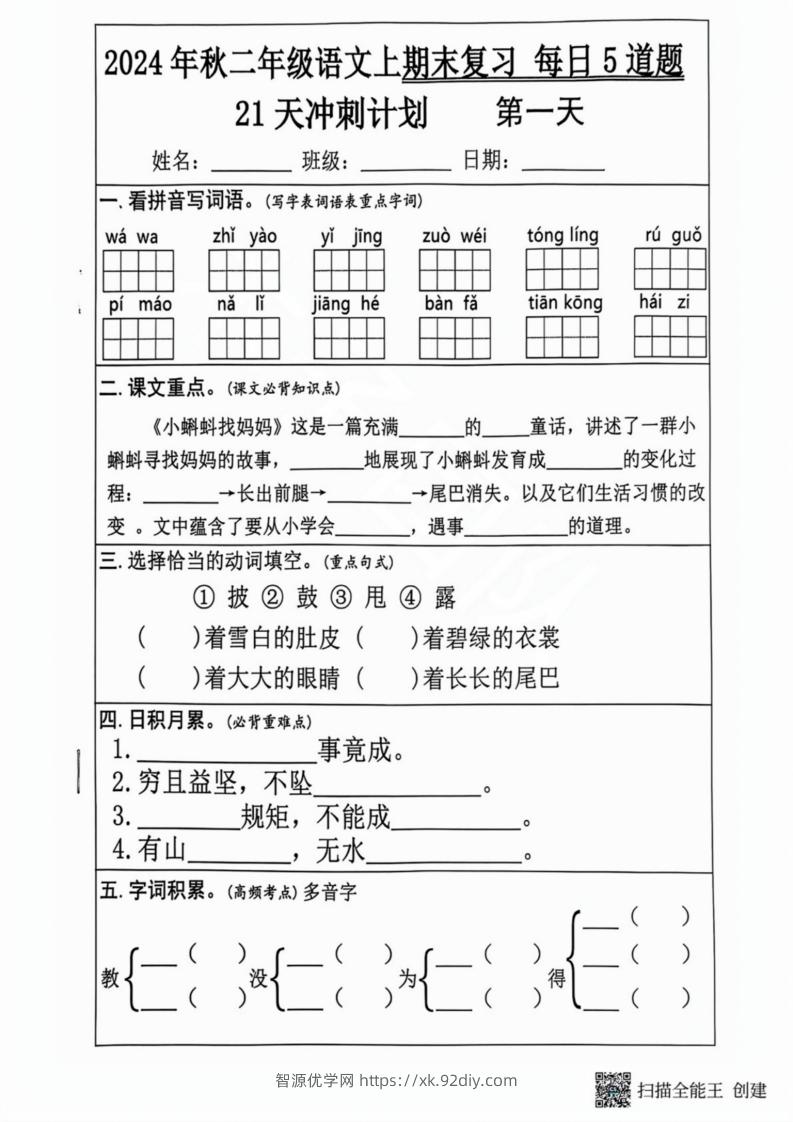 2024年秋二年级语文上期末复习 每日5道题
21天冲刺计划 第一天
姓名：______ 班级：______ 日期：______
一.看拼音写词语。(写字表词语表重点字词)
wá wa zhǐ yào yǐ jīng zuò wéi tóng líng rú guǒ
pí máo nǎ lǐ jiāng hé bàn fǎ tiān kōng hái zi
二.课文重点。(课文必背知识点)
《小蝌蚪找妈妈》这是一篇充满______的____童话，讲述了一群小
蝌蚪寻找妈妈的故事，______地展现了小蝌蚪发育成______的变化过
程：______→长出前腿→______→尾巴消失。以及它们生活习惯的改
变 。文中蕴含了要从小学会______，遇事________的道理。
三.选择恰当的动词填空。(重点句式)
① 披 ② 鼓 ③ 甩 ④ 露
( )着雪白的肚皮 ( )着碧绿的衣裳
( )着大大的眼睛 ( )着长长的尾巴
四.日积月累。(必背重难点)
1.____________事竟成。
2.穷且益坚，不坠____________。
3.________规矩，不能成________。
4.有山________，无水__________。
五.字词积累。(高频考点)多音字
教 ___( ) ___( ) 没 ___( ) ___( ) 为 ___( ) ___( ) 得 ___( ) ___( ) ___( )
智源优学网 https://xk.92diy.com
扫描全能王 创建